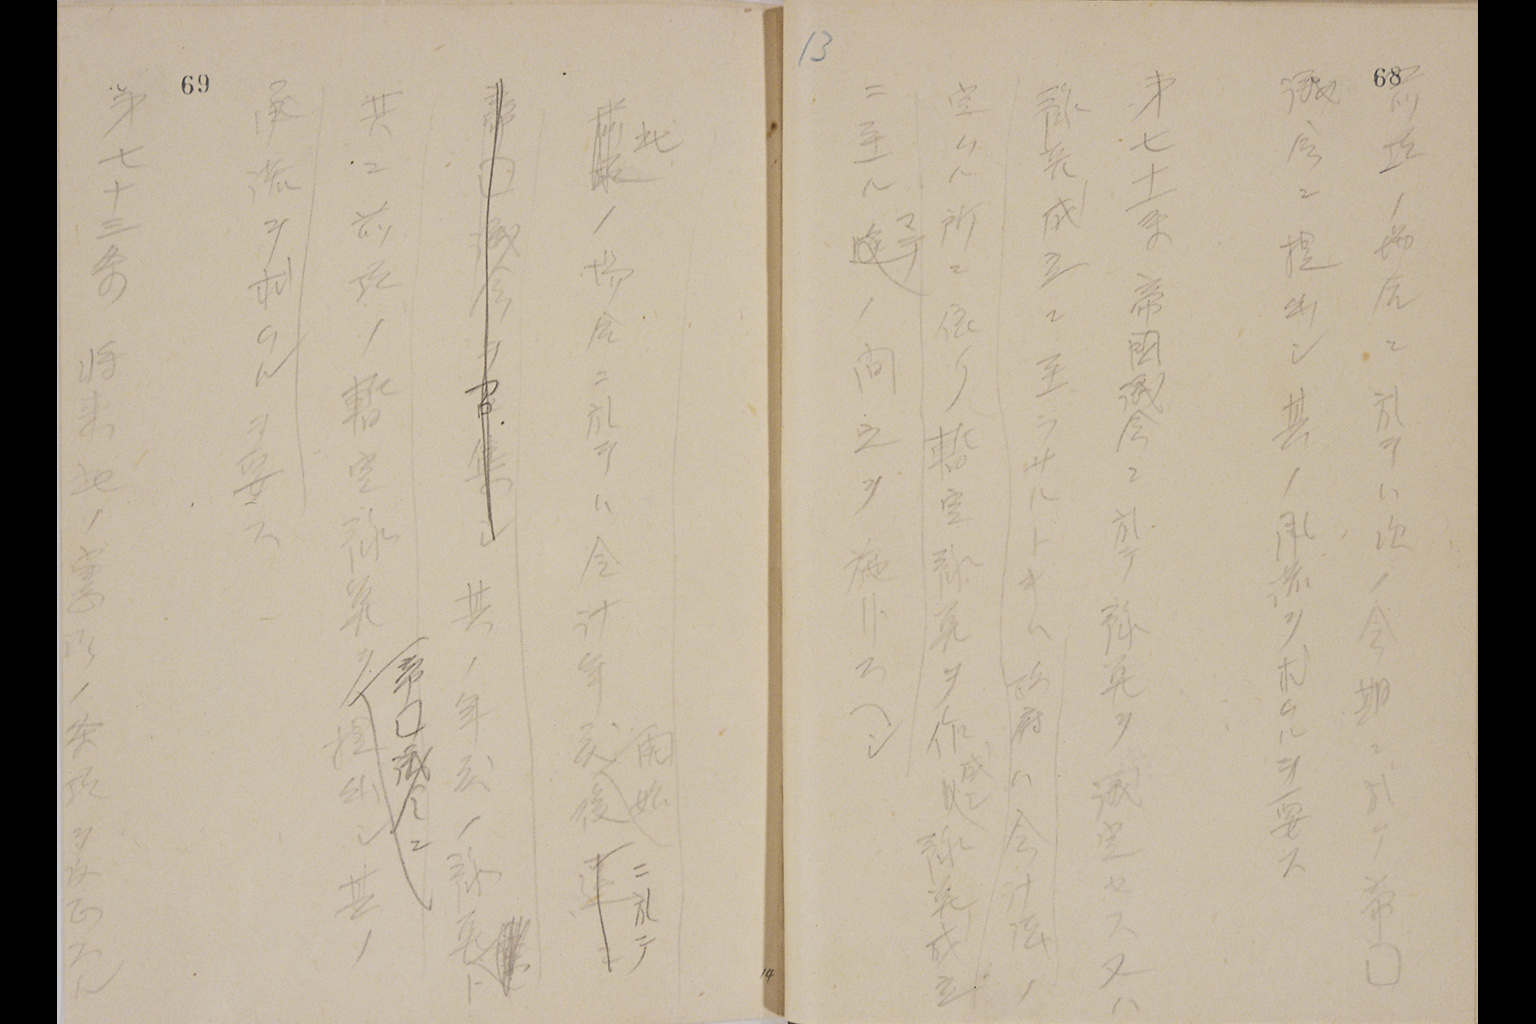 13
68
前項ノ場合ニ於テハ次ノ会期ニ於テ帝囗
議会ニ提出シ其ノ承諾ヲ求ムルヲ要ス
第七十一条 帝国議会ニ於テ予算ヲ議定セス又ハ
予算成立ニ至ラサルトキハ政府ハ会計法ノ
定ムル所ニ依リ暫定予算ヲ作成シ予算成立
ニ至ル迄ノ間之ヲ施行スヘシ
マテ
69
此ノ場合ニ於テハ会計年度
開始
後
ニ於テ
帝囗議会ヲ召集シ其ノ年度ノ予算ト
共ニ前項ノ暫定予算ヲ提出シ其ノ
帝囗議会ニ
承諾ヲ求ムルヲ要ス
第七十三条 将来此ノ憲法ノ条項ヲ改正スル
14